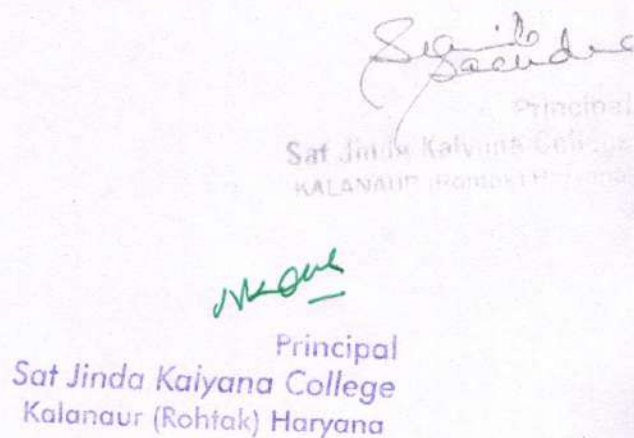 Principal
Sat Jinda Kalyana College
KALANAUR (Rohtak) Haryana
Principal
Sat Jinda Kalyana College
Kalanaur (Rohtak) Haryana